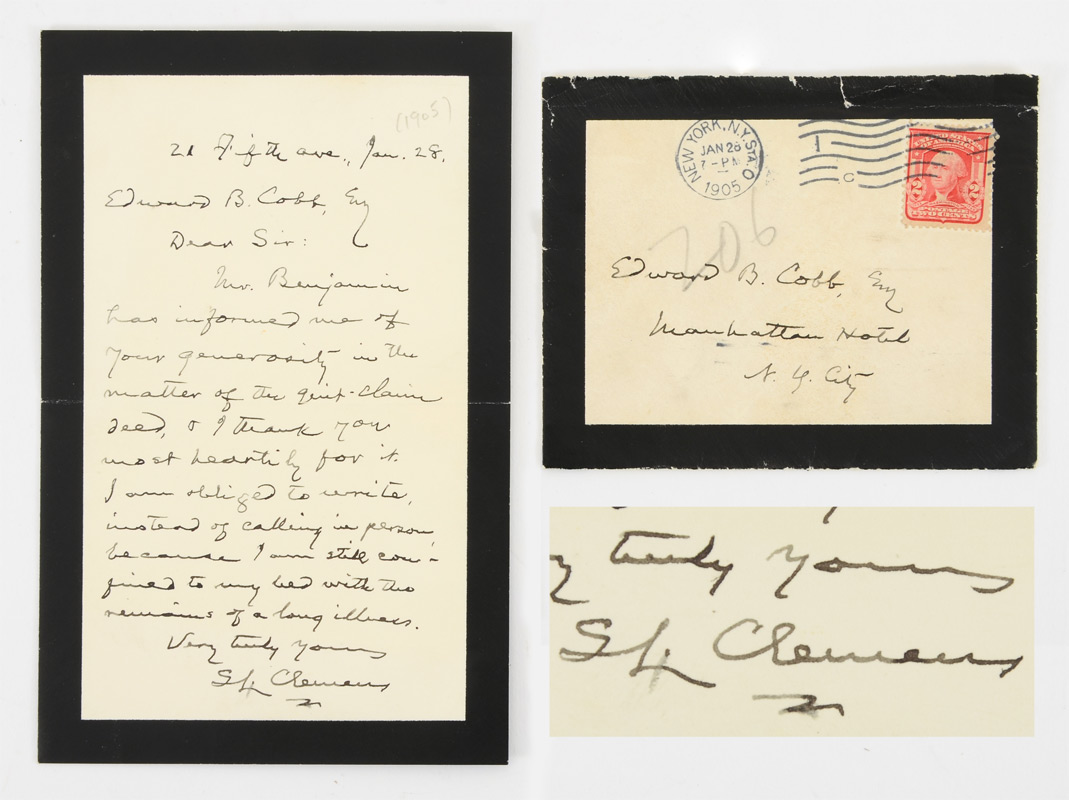 (1905)
21 Fifth ave., Jan. 28.
Edward B. Cobb, Esq
Dear Sir:
Mr. Benjamin
has informed me of
your generosity in the
matter of the quit-claim
deed, & I thank you
most heartily for it.
I am obliged to write,
instead of calling in person,
because I am still con-
fined to my bed with the
remains of a long illness.
Very truly yours
SL Clemens
NEW YORK, N.Y. STA. O
JAN 28
7-PM
1905
1
C
UNITED STATES
OF AMERICA
2 2
POSTAGE
TWO CENTS
206
Edward B. Cobb, Esq
Manhattan Hotel
N. Y. City
y truly yours
SL Clemens